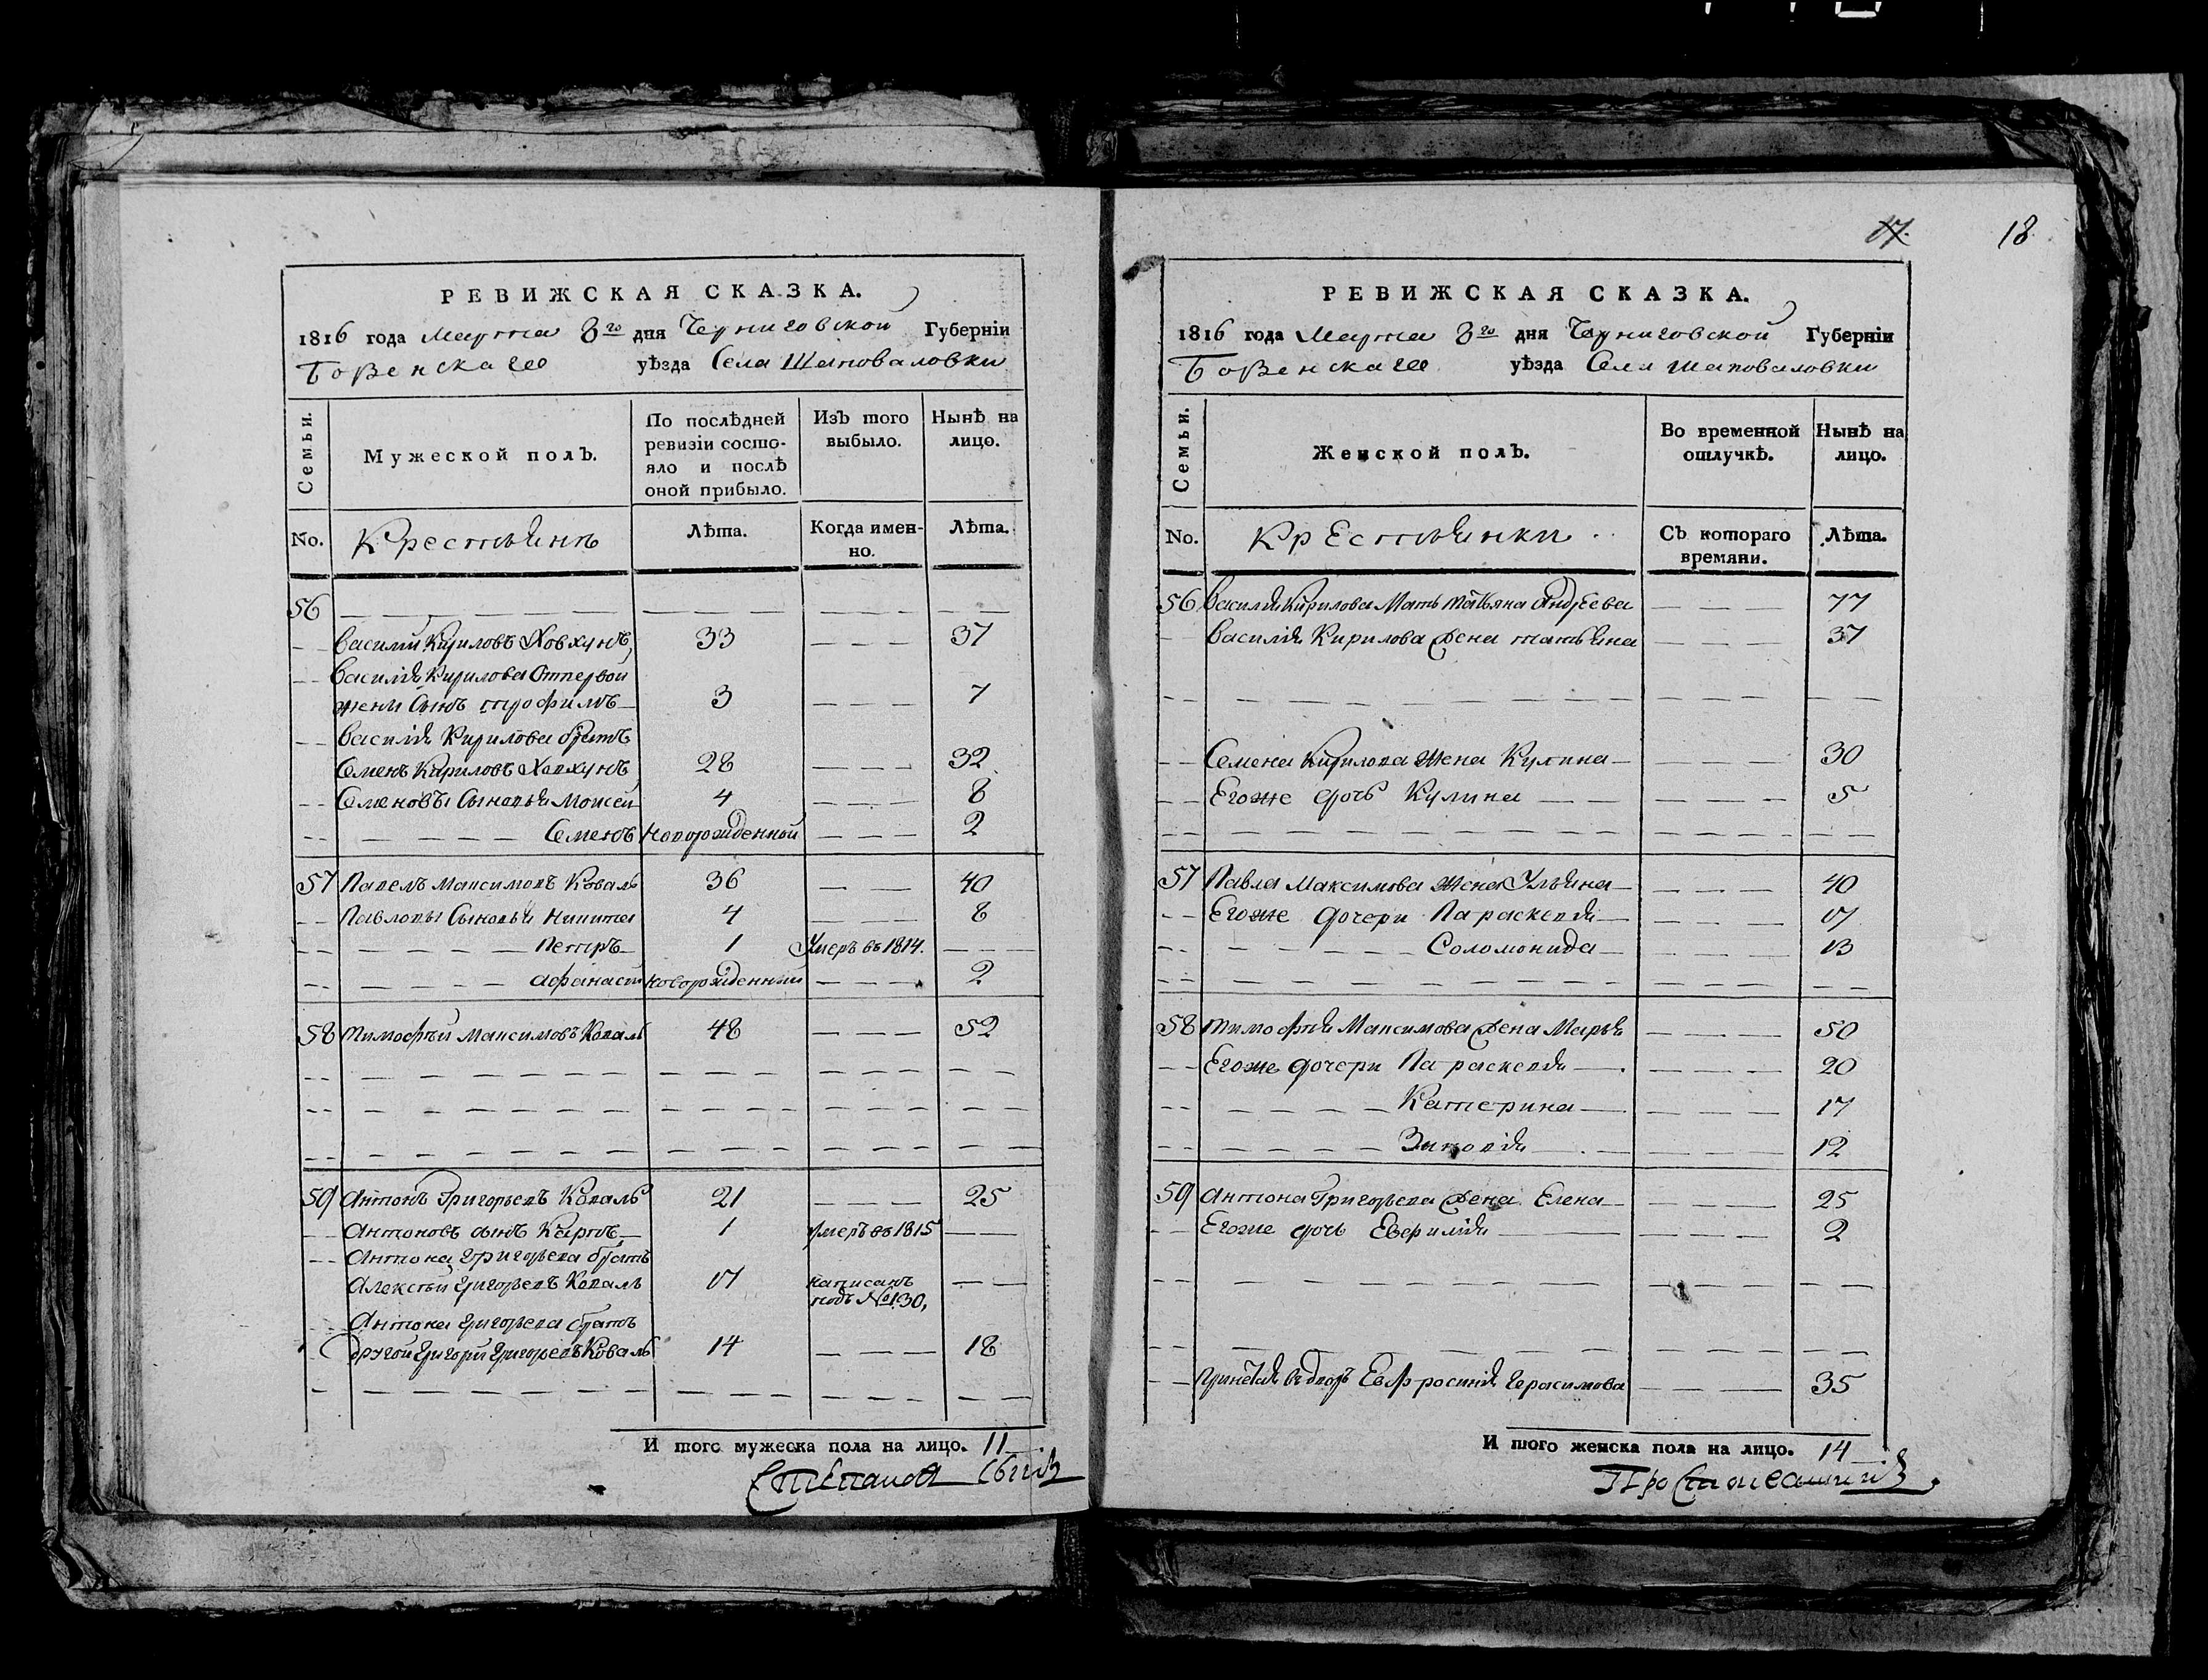 17. 18
РЕВИЖСКАЯ СКАЗКА.
1816 года Марта 8го дня Черниговской Губерніи
Борзенскаго уѣзда Села Шаповаловки
Семьи.
Мужеской полъ.
По послѣдней ревизіи состо-
яло и послѣ
оной прибыло.
Изъ того
выбыло.
Нынѣ на
лицо.
No.
Лѣта.
Когда имен-
но.
Лѣта.
56
Василій Кириловъ Ховхунъ 33 37
Василія Кирилова Отпервой
жени Сынъ трофимъ 3 7
Василія Кирилова братъ
Семенъ Кириловъ Ховхунъ 28 32
Семеновы Сыновья Моисей 4 8
Семенъ Новорожденный 2
57 Павелъ Максимовъ Коваль 36 40
Павловы Сыновья Никита 4 8
Петръ 1 Умеръ въ 1814.
Афанасій новорожденный 2
58 тимофѣй Максимовъ Коваль 48 52
59 Антонъ Григорьевъ Коваль 21 25
Антоновъ сынъ Карпъ 1 умеръ въ 1815
Антона григорьева братъ
Алексѣй григорьевъ Коваль 17 написанъ
подъ №130,
Антона григорьева братъ
другой григорій григорьевъ Коваль 14 18
И того мужеска пола на лицо. 11
РЕВИЖСКАЯ СКАЗКА.
1816 года Марта 8го дня Черниговской Губерніи
Борзенскаго уѣзда Села шаповаловки
Семьи.
Женской полъ.
Во временной
отлучкѣ.
Нынѣ на
лицо.
No.
Крестьянки
Съ котораго
времяни.
Лѣта.
56 Василія Кирилова Мать татьяна Андреева 77
Василія Кирилова жена татьяна 37
Семена Кирилова жена Кулина 30
Егоже дочь Кулина 5
57 Павла Максимова жена Ульяна 40
Егоже дочери Параскевія 17
Соломонида 13
58 тимофея Максимова жена Марья 50
Егоже дочери Параскевія 20
Катерина 17
Зиновія 12
59 Антона Григорьева жена Елена 25
Егоже дочь 2
Принетая въ дворъ Евфросинія Герасимова 35
И того женска пола на лицо. 14